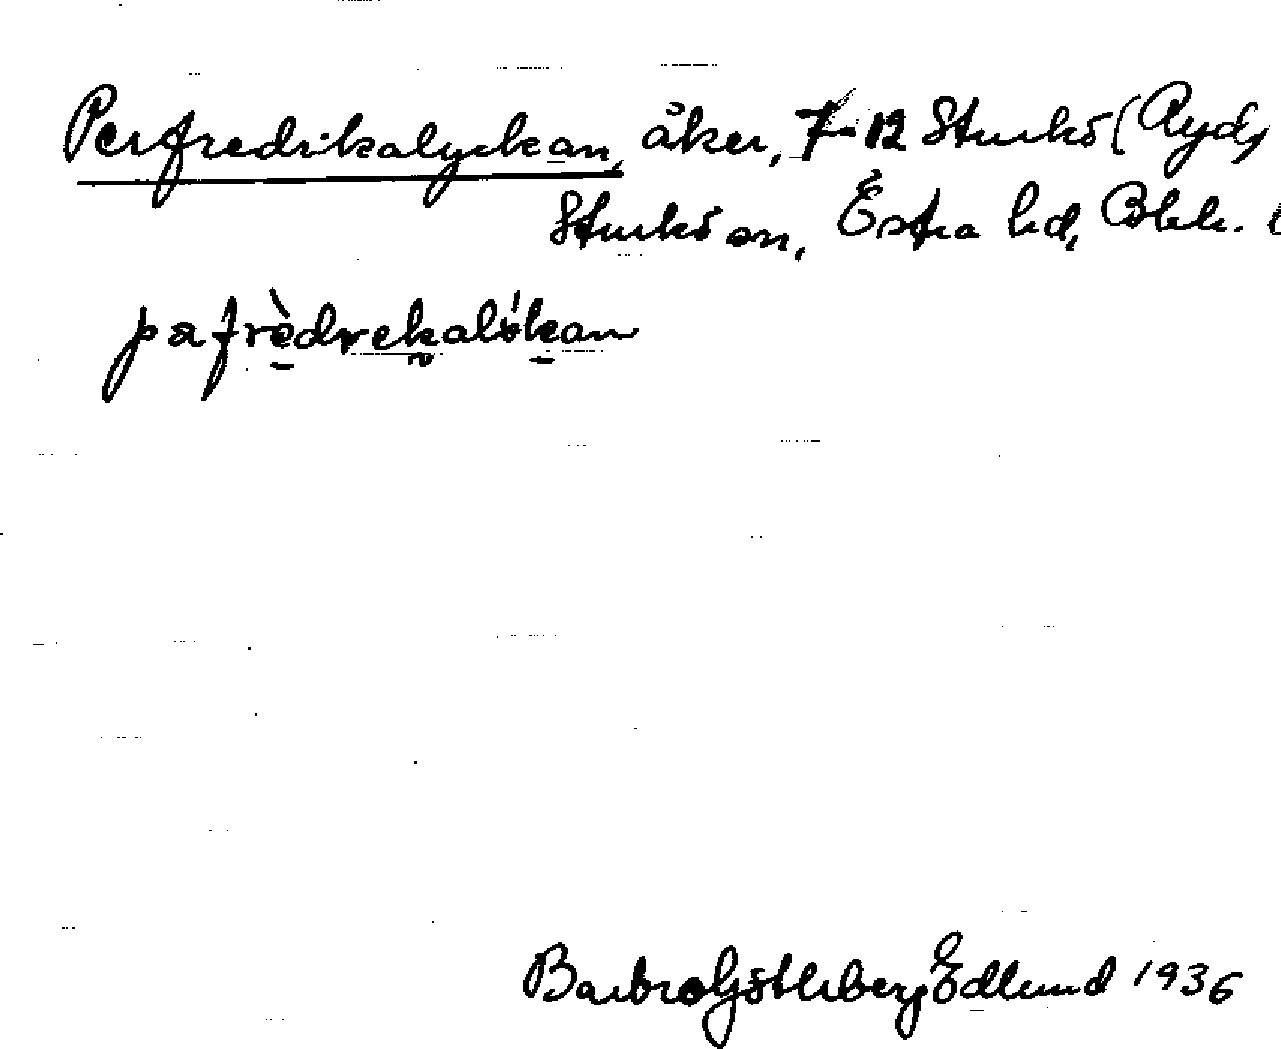 Perfredrikalyckan, åker, 7-12 Sturkö (Ryd,
Sturkö sn, Östra hd, Blek.
pafrèdrekalỏkan
Barbro Göthberg Edlund 1936